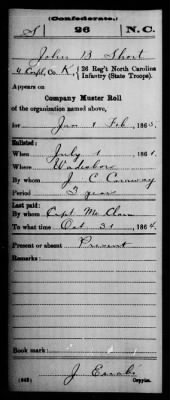 (Confederate.)
S 26 N.C.
John B Short
4 Corpl, Co. K, 26 Reg't North Carolina
Infantry (State Troops).
Appears on
Company Muster Roll
of the organization named above,
for Jan & Feb, 1865.
Enlisted:
When July 1, 1861.
Where Wadesboro
By whom J C
Period 3 years
Last paid:
By whom Capt McClain
To what time Oct 31, 1864.
Present or absent Present
Remarks:
Book mark:
(642) J Copyist.